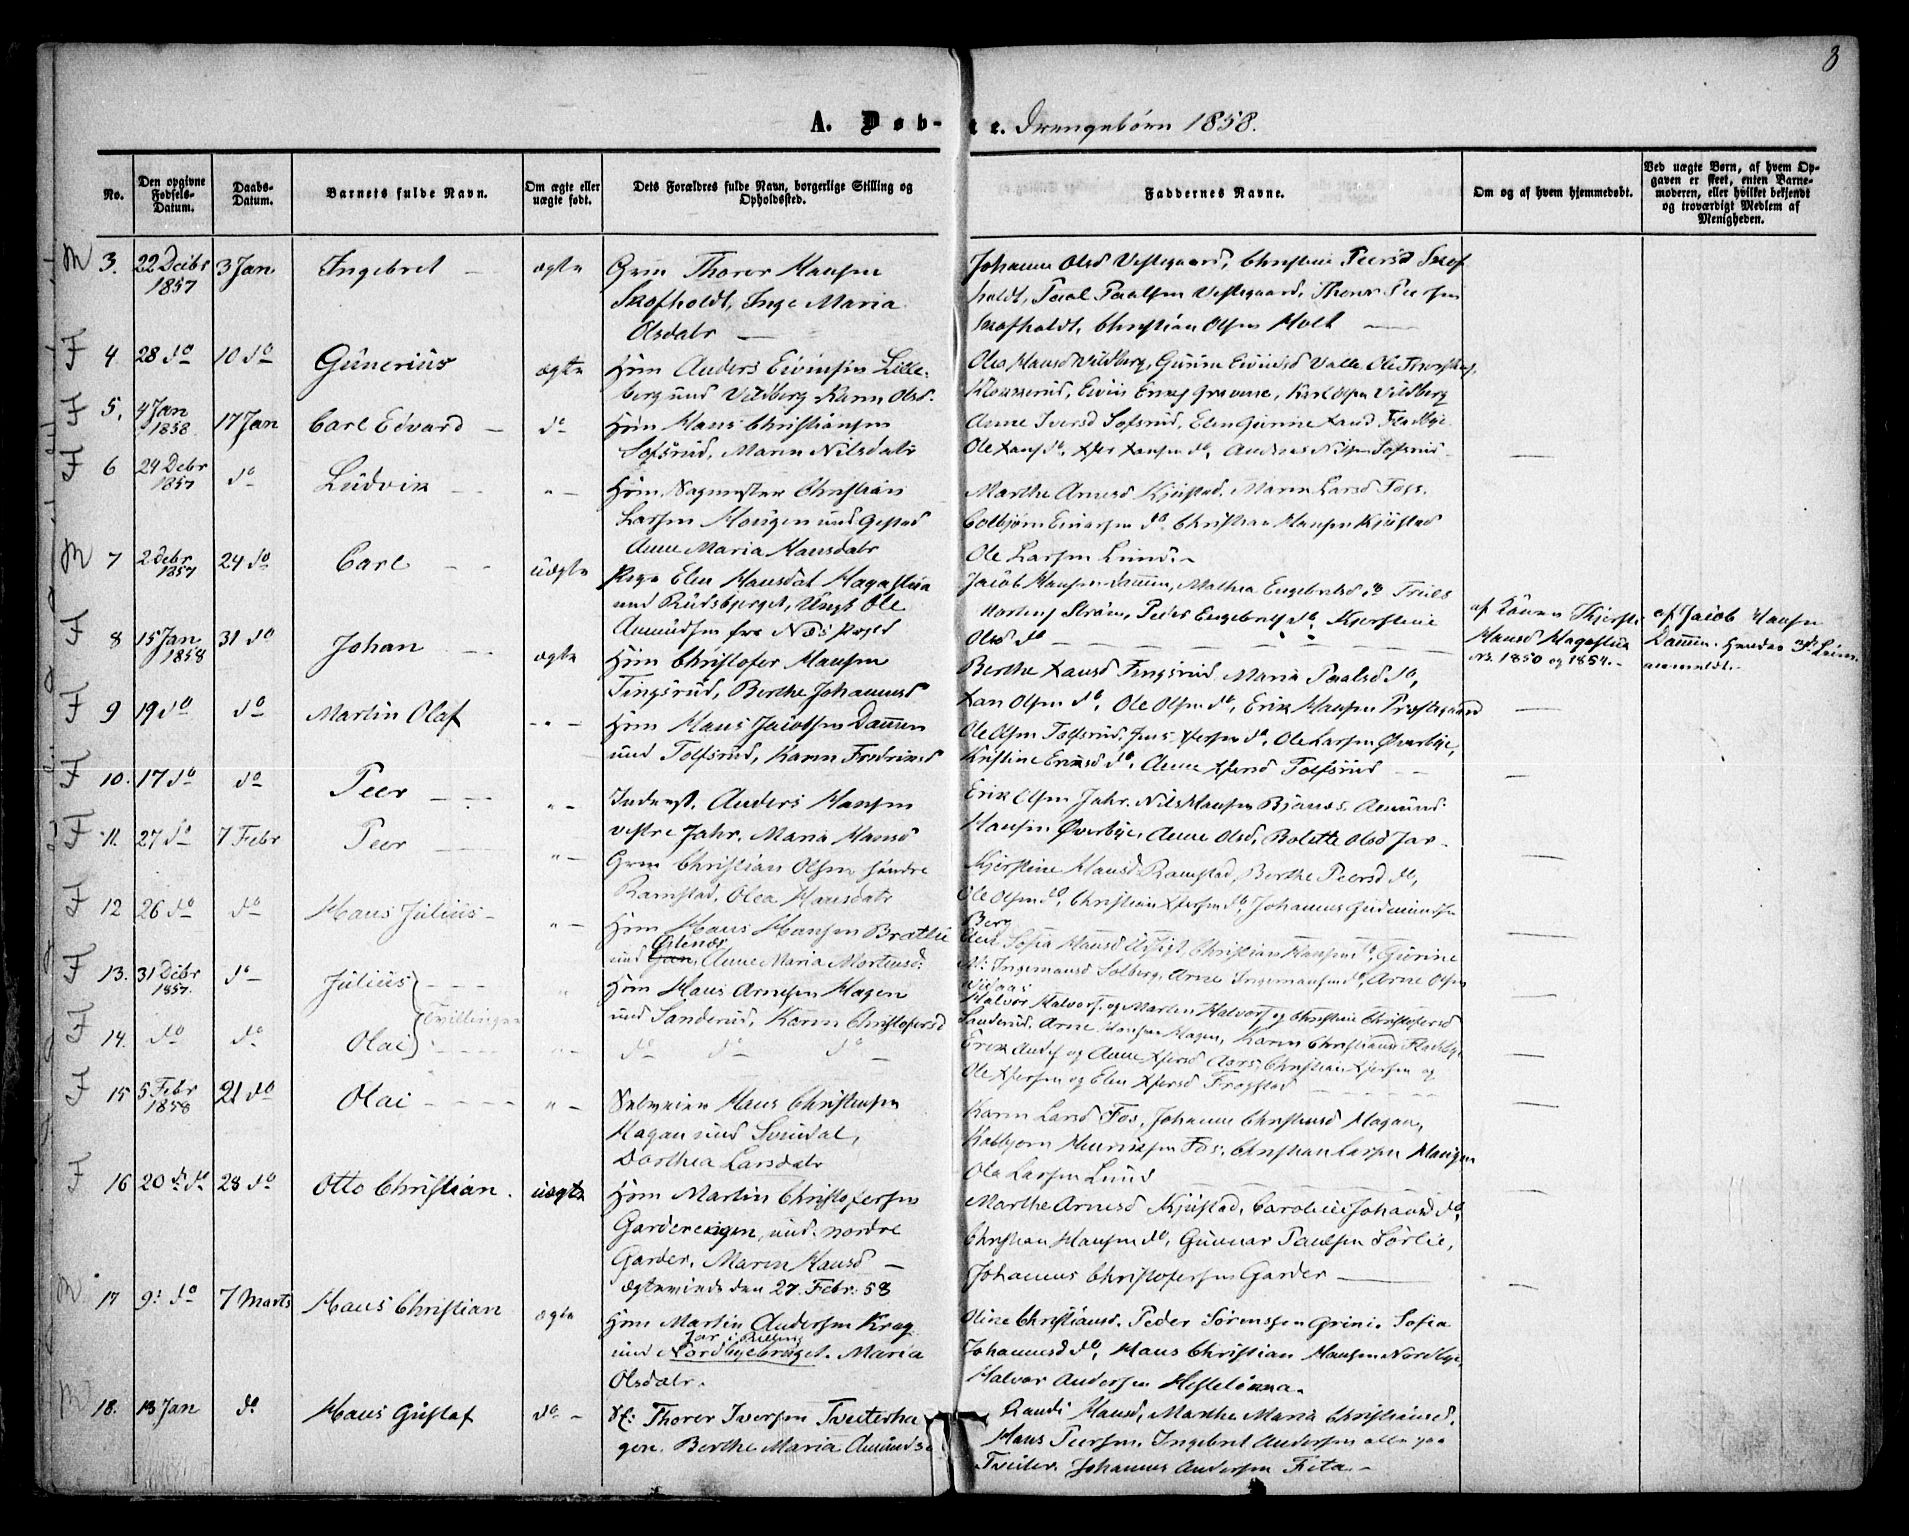 3
A. Døb-te. Drengebørn 1858.
No.
Den opgivne Fødsels-Datum.
Daabs-Datum.
Barnets fulde Navn.
Om ægte eller uægte født.
Dets Forældres fulde Navn, borgerlige Stilling og Opholdssted.
Faddernes Navne.
Om og af hvem hjemmedøbt.
Ved uægte Børn, af hvem Opgaven er skeet, enten Barnemoderen, eller hvilket bekjendt og troværdigt Medlem af Menigheden.
M 3. 22 Decbr 1857 3 Jan Ingebret ægte Grm Thorer Hansen
Skofholdt, Inge Maria
Olsdatr
Johanne Olsd Vestegaard, Christine Peersd Skof
holdt, Paal Paalsen Vestegaard, Thorer Peersen
Skofholdt, Christian Olsen Holt
F 4 28 do 10 do Gunerius ægte Hsm Anders Eivinsen Lille-
berg und Vildberg Karen Olsd.
Olea Hansd Vildberg, Gunine Eivindsd Valle, Ole
Karl Olsen Vildberg
F 5. 4 Jan 1858 17 Jan Carl Edvard do Hsm Hans Christiansen
Tofsrud, Maren Nilsdatr
Anne Iversd Tofsrud, Elen Gurine Hansd Fladbye
Ole Hans do, Andreas Nilsen Tofsrud
F 6 24 Debr 1857 do Ludvik " Hsm, Sagmester Christian
Larsen Haugen und Gjestad
Anne Maria Hansdatr
Marthe Arnesd Kjustad, Maren Larsd Foss.
Colbjørn Einarsen do Christian Hansen Kjustad
Ole Larsen Lund.
M 7 2 Debr 1857 24 do Carl uægte Pige Elen Hansdat Hagastua
und Rudsbjerget, Ungk Ole
Amundsen fra Næs Præst
Jacob Hansen Damen, Mathea Engebretsd do Truls
Mortens Strøm, Peder Engebrets do Kjerstine
Olsd do
af Konen Kjersti
Hansd Hagastua
N. 1850 og 1854.
af Jacob Hansen
Damen. Hendes 3de Leierm.
anmeldt.
F 8 15 Jan 1858 31 do Johan ægte Hsm Christofer Hansen
Tingsrud, Berthe Johannesd
Berthe Hansd Tingsrud Maria Paalsd do,
Han Olsen do, Ole Olsen do, Erik Hansen Præstegaard
F 9 19 do do Martin Olaf " Hsm Hans Jacobsen Damen
und Tofsrud, Karen Fredriksd
Ole Olsen Tofsrud, Jens do, Ole Larsen Øverbye,
Kristine Eriksd do, Anne Tofsrud
F 10. 17 do do Peer " Inderst. Anders Hansen
vestre Jahr, Maria Hansd
Erik Olsen Jahr. Nils Hansen Bjønes. Amund
Hansen Øverbye, Anne Olsd, Bolette Olsd Jar
F 11. 27 do 7 Febr Peer " Grm Christian Olsen søndre
Ramstad, Olea Hansdatr
Kjerstine Hansd Ramstad, Berthe Peersd do,
Ole Olsen do, Christian do, Johannes Gudmundsen
Berg
F 12 26 do do Hans Julius " Hsm Hans Hansen Bratlie
und Østenør, Anne Maria Mortensd:
Sofia Hansd Udsigt, Christian Hansen do, Gurine
Ingemansd Solberg, Arne Ingemansen do, Arne Olsen
F 13. 31 Debr 1857. do Julius Tvillinger " Hsm Hans Arnesen Hagen
und Sanderud, Karen Christofersd
Halvor Halvors. og Marten Halvors og Christine Christofersd
Sanderud, Arne Hansen Hagen, Karen Christiansd Fladbye
F 14. do do Olai " do do do
Erik Anders og Anne Aars, Christian og
Ole og Elen Frogstad
F 15 5 Febr 1858 21 do Olai " Selveier Hans Christensen
Hagan und Svindal,
Dorthea Larsdatr
Karen Larsd Fos, Johanne Christensd Hagan,
Kolbjørn Henriksen Fos, Christian Larsen Haugen
Ole Larsen Lund
F 16 20 do 28 do Otto Christian. uægte Hsm Martin Christofersen
Gardereigen, und. nordre
Garder, Maren Hansd
ægteviede den 27 Febr. 58
Marthe Arnesd Kjustad, Caroline Johansd do,
Christian Hansen do, Gunnar Paulsen Sørlie,
Johannes Christofersen Garder
M 17 9. do 7 Marts Hans Christian ægte Hsm Martin Andersen Krog
Jar i Rælling
und Nordbyebraaget. Maria
Olsdatr.
Oline Christiansd. Peder Sørensen Grini. Sofia
Johannesd do, Hans Christian Hansen Nordbye,
Halvor Andersen Hestelønna.
M 18. 13 Jan do Hans Gustaf do Thorer Iversen Tveiterha
gen. Berthe Maria Amundsd
Randi Hansd, Marthe Maria Christiansd.
Hans Peersen, Ingebret Andersen alle paa
Tveiter. Johannes Andersen Fita.